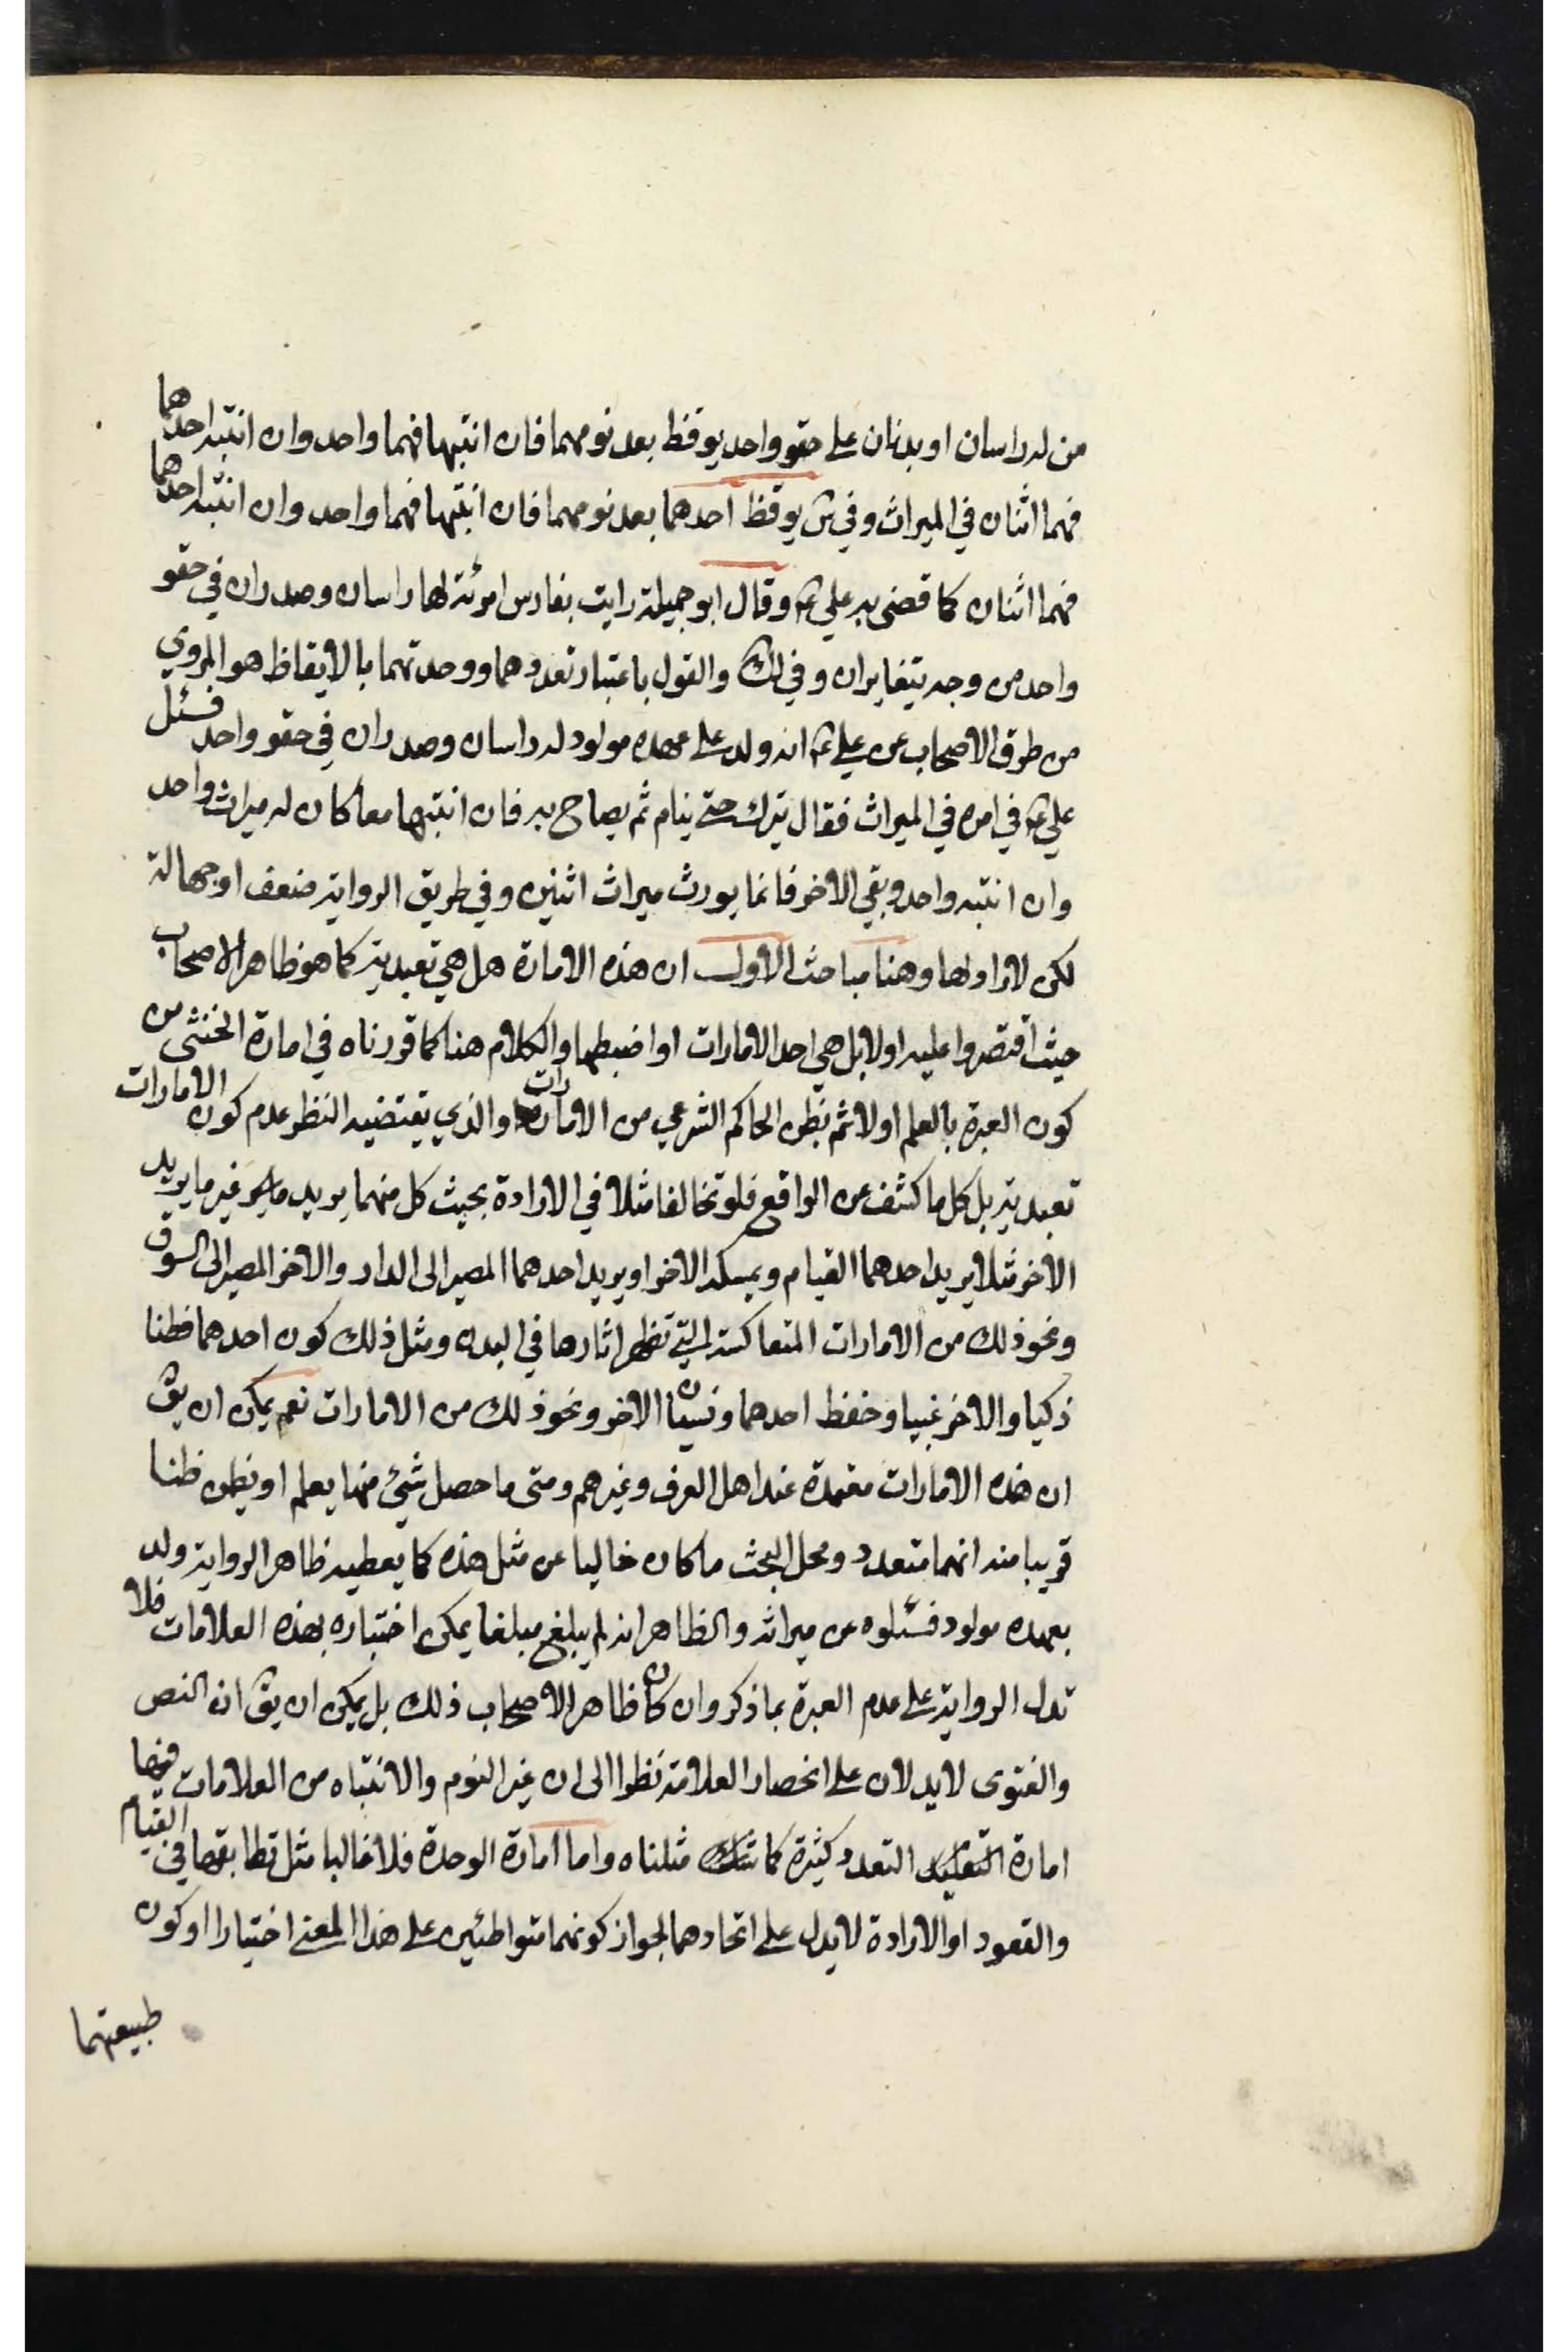 من له راسان او بدنان على حقو واحد يوقظ بعد نومهما فان انتبها فهما واحد وان انتبه احدهما
فهما اثنان في الميراث وفي ش يوقظ احدهما بعد نومهما فان انتبها فهما واحد وان انتبه احدهما
فهما اثنان كما قضى به علي ع وقال ابو جميلة رايت بفارس امرئة لها راسان وصدران في حقو
واحد من وجه يتغايران وفي لك والقول باعتبار تعددهما ووحدتهما بالايقاظ هو المروي
من طرق الاصحاب عن علي ع انه ولد على عهده مولود له راسان وصدران في حقو واحد فسئل
علي ع في امره في الميراث فقال يترك حتى ينام ثم يصاح به فان انتبها معا كان له ميراث واحد
وان انتبه واحد وبقي الاخر فانما يورث ميراث اثنين وفي طريق الرواية ضعف او جهالة
لكن لا راد لها وهنا مباحث الاول ان هذه الامارة هل هي تعبدية كما هو ظاهر الاصحاب
حيث اقتصروا عليه اولا بل هي احد الامارات او اضبطها والكلام هنا كما قررناه في امارة الخنثى من
كون العبرة بالعلم اولا ثم بظن الحاكم الشرعي من الامارات والذي يقتضيه النظر عدم كون الامارات
تعبدية بل كل ما كشف عن الواقع فلو تخالفا مثلا في الارادة بحيث كل منهما يريد غير ما يريد
الاخر مثلا يريد احدهما القيام ويمسكه الاخر او يريد احدهما المصير الى الدار والاخر المصير الى السوق
ونحو ذلك من الامارات المتعاكسة التي تظهر اثارها في البدن ومثل ذلك كون احدهما فطنا
ذكيا والاخر غبيا وحفظ احدهما ونسيان الاخر ونحو ذلك من الامارات نعم يمكن ان يق
ان هذه الامارات معتمدة عند اهل العرف وغيرهم ومتى ما حصل شئ منها يعلم او يظن ظنا
قريبا منه انهما متعدد ومحل البحث ما كان خاليا عن مثل هذه كما يعطيه ظاهر الرواية ولد
بعهده مولود فسئلوه عن ميراثه والظاهر انه لم يبلغ مبلغا يمكن اختباره بهذه العلامات فلا
تدل الرواية على عدم العبرة بما ذكر وان كان ظاهر الاصحاب ذلك بل يمكن ان يق ان النص
والفتوى لا يدلان على انحصار العلامة نظرا الى ان غير النوم والانتباه من العلامات فيها
امارة التعدد كثيرة كما مثلناه واما امارة الوحدة فلا غالبا مثل تطابقهما في القيام
والقعود او الارادة لا يدل على اتحادهما لجواز كونهما متواطئين على هذا المعنى اختيارا او كون
طبيعتهما